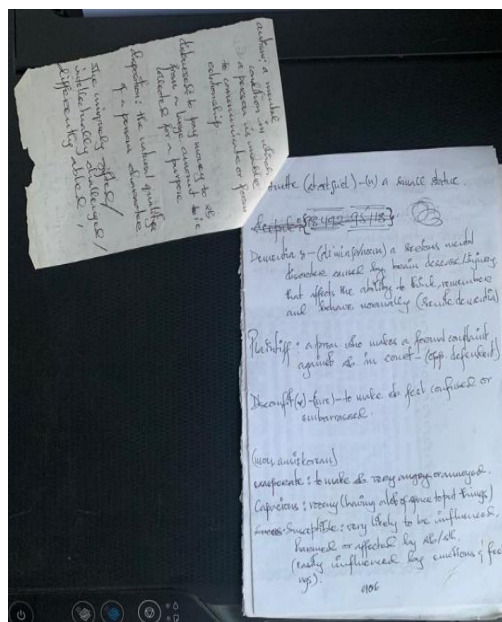 autism: a mental
condition in which
a person is unable
to communicate or form
relationship.
disburse: to pay money to sb
from a large amount
collected for a purpose
disposition: the natural qualities
of a persons character
The uniquely gifted/
intellectually challenged/
differently abled,
(n) a small statue.
Dementia
disorder caused by brain disease/injury
that affects the ability to think, remember
and behave normally (senile dementia)
Plaintiff: a person who makes a formal complaint
against sb in court - (opp. defendant)
Discomfit(v) - to make sb feel confused or
embarrassed.
exasperate: to make sb very angry or annoyed.
Capacious: roomy (having a lot of space to put things)
Susceptible: very likely to be influenced,
harmed or affected by sb/sth,
(easily influenced by emotions &